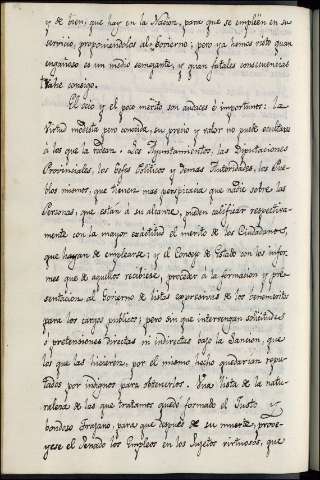 y de bien, que hay en la Nacion, para que se empleen en su
servicio, proponiendolos al Govierno; pero ya hemos visto quan
engañoso es un medio semejante, y quan fatales consecuencias
trahe consigo.
El ocio y el poco merito son audaces é importunos: la
Virtud modesta pero conocida, su precio y valor no puede ocultarse
á los que la rodean. Los Ayuntamientos, las Diputaciones
Provinciales, los Gefes Politicos y demas Autoridades, los Pue-
blos mismos, que tienen mas perspicacia que nadie sobre las
Personas, que están á su alcance, pueden calificar respectiva-
mente con la mayor exâctitud el merito de los Ciudadanos,
que hayan de emplearse; y el Consejo de Estado con los infor-
mes que de aquellos recibiese, proceder á la formacion y pre-
sentacion al Govierno de listas expresivas de los benemeritos
para los cargos publicos; pero sin que intervengan solicitudes
ó pretensiones directas ni indirectas bajo la Sancion, que
los que las hicieren, por el mismo hecho quedarían repu-
tados por indignos para obtenerlos. Una lista de la natu-
raleza de las que tratamos quedó formada el Justo y
bondoso Trajano, para que despues de su muerte, prove-
yese el Senado los Empleos en los Sujetos virtuosos, que